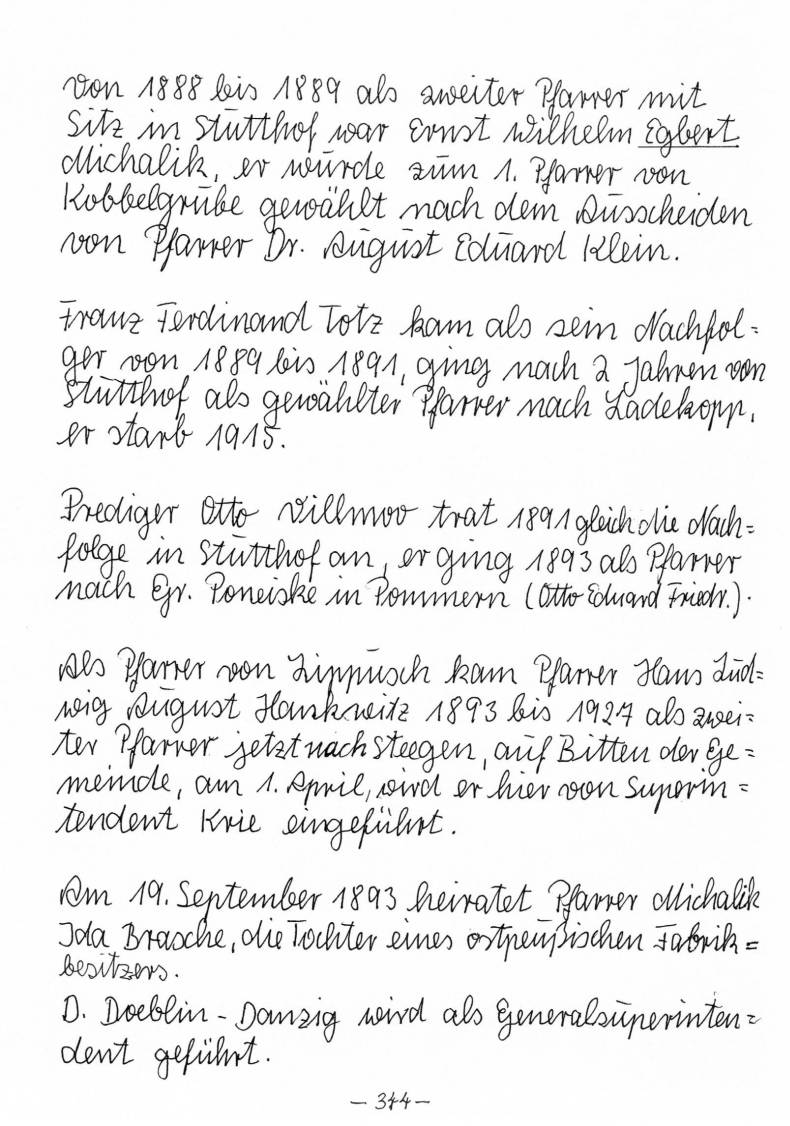 Von 1888 bis 1889 als zweiter Pfarrer mit
Sitz in Stutthof war Ernst Wilhelm Egbert
Michalik, er wurde zum 1. Pfarrer von
Kobbelgrube gewählt nach dem Ausscheiden
von Pfarrer Dr. August Eduard Klein.
Franz Ferdinand Totz kam als sein Nachfol=
ger von 1889 bis 1891, ging nach 2 Jahren von
Stutthof als gewählter Pfarrer nach Ladekopp,
er starb 1915.
Prediger Otto Villmow trat 1891 gleich die Nach=
folge in Stutthof an, er ging 1893 als Pfarrer
nach Gr. Poneiske in Pommern (Otto Eduard Friedr.).
Als Pfarrer von Lippusch kam Pfarrer Hans Lud=
wig August Hankwitz 1893 bis 1927 als zwei=
ter Pfarrer jetzt nach Steegen, auf Bitten der Ge=
meinde, am 1. April, wird er hier von Superin=
tendent Krie eingeführt.
Am 19. September 1893 heiratet Pfarrer Michalik
Ida Brasche, die Tochter eines ostpeußischen Fabrik=
besitzers.
D. Doeblin - Danzig wird als Generalsuperinten=
dent geführt.
- 344 -